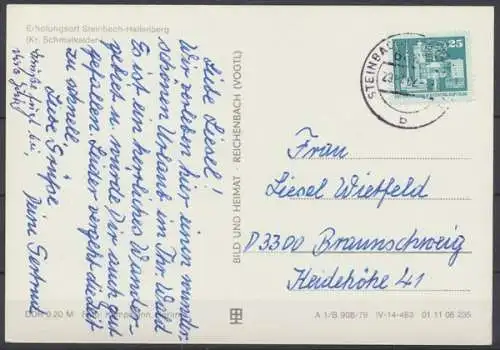 Erholungsort Steinbach-Hallenberg
(Kr. Schmalkalden)
Liebe Liesel!
Wir verleben hier einen wunder-
schönen Urlaub im Thr Wald
Es ist ein herrliches Wander-
gebiet u. würde Dir auch gut
gefallen. Leider vergeht die Zeit
zu schnell.
Liebe Grüße
Deine Gertrud
BILD UND HEIMAT · REICHENBACH (VOGTL)
STEINBACH
b
25
Frau
Liesel Wietfeld
D3300 Braunschweig
Heidehöhe 41
DDR 0,20 M
A 1/B 908/79 IV-14-483 01 11 06 235